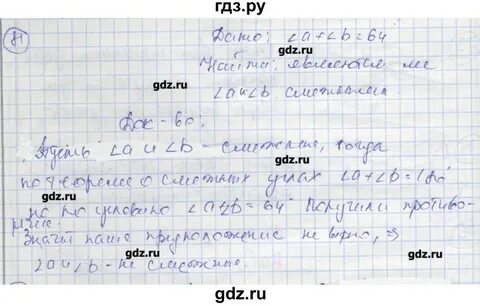 гдз.ру
81
Дано: ∠a+∠b=64°
Найти: являются ли
∠a и ∠b смежными
Док-во:
Пусть ∠a и ∠b - смежные, тогда
по теореме о смежных углах ∠a+∠b=180°
но по условию ∠a+∠b=64° Получили противо-
речие. Значит наше предположение не верно, ⇒
∠a и ∠b - не смежные.
gdz.ru
gdz.ru
gdz.ru
gdz.ru
gdz.ru
gdz.ru
gdz.ru
gdz.ru
gdz.ru